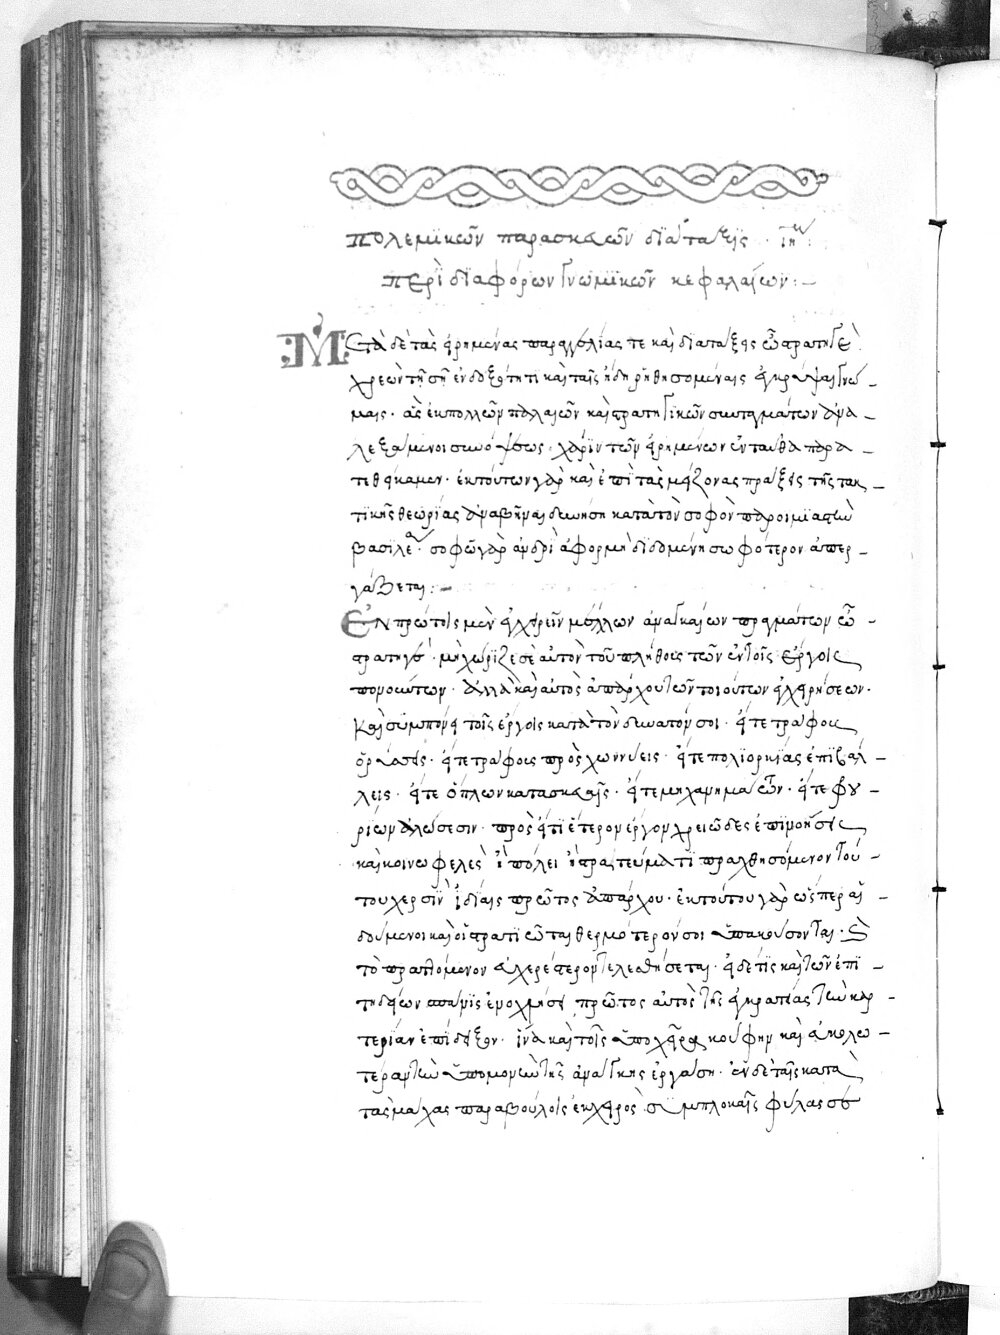 πολεμικῶν παρασκευῶν διάταξις. ιηʹ
περὶ διαφόρων γνωμικῶν κεφαλαίων:—
Μετὰ δὲ τὰς εἰρημένας παραγγελίας τε καὶ διατάξεις ὦ στρατηγὲ
χρεὼν τῇ σῇ ἐνδοξότητι καὶ ταῖς ἤδη ῥηθησομέναις ἐγκῦψαι γνώ-
μαις. ἃς ἐκ πολλῶν παλαιῶν καὶ στρατηγικῶν συνταγμάτων ἀνα-
λεξάμενοι συνόψεως χάριν τῶν εἰρημένων ἐνταῦθα παρα-
τιθείκαμεν. ἐκ τούτων γὰρ καὶ ἐπὶ τὰς μείζονας πράξεις τῆς τακ-
τικῆς θεωρίας ἀναβῆναι δυνήσῃ κατὰ τὸν σοφὸν παροιμιαστὴν
βασιλέα. σοφῷ γὰρ ἀνδρὶ ἀφορμὴ διδομένη σωφότερον ἀπερ-
γάζεται:—
Ἐν πρώτοις μὲν ἐγχειρεῖν μέλλων ἀναγκαίων πραγμάτων ὦ
στρατηγέ. μὴ χώριζε σεαυτὸν τοῦ πλήθους τῶν ἐν τοῖς ἔργοις
πονούντων. ἀλλὰ καὶ αὐτὸς ἀπάρχου τῶν τοιούτων ἐγχειρήσεων.
καὶ συμπόνει τοῖς ἔργοις κατὰ τὸν δυνατόν σοι. εἴτε τράφους
ὀρύσσεις. εἴτε τράφους προσχωννύεις. εἴτε πολιορκίας ἐπιβάλ-
λεις. εἴτε ὅπλων κατασκευαῖς. εἴτε μηχανημάτων. εἴτε φρου-
ρίων ἁλώσεσιν. πρὸς εἴ τι ἕτερον ἔργον χρειῶδες ἐπινοήσεις
καὶ κοινωφελὲς ἢ πόλει ἢ στρατεύματι πραχθησόμενον τού-
του χερσὶν ἰδίαις πρῶτος ἀπάρχου. ἐκ τούτου γὰρ ὥσπερ αἰ-
δούμενοι καὶ οἱ στρατιῶται θερμότερόν σοι ὑπακούσονται.
τὸ πραττόμενον εὐχερέστερον τελεσθήσεται. εἰ δέ τις καὶ τῶν ἐπι-
τηδείων σπάνις ἐνοχλήσει πρῶτος αὐτὸς τῆς ἐγκρατείας τὴν καρ-
τερίαν ἐπίδειξον. ἵνα καὶ τοῖς ὑπὸ χεῖρα κούφην καὶ εὐκολω-
τέραν τὴν ὑπομονὴν τῆς ἀνάγκης ἐργάσῃ. ἐν δὲ ταῖς κατὰ
τὰς μάχας παραβούλοις ἐκ χειρὸς συμπλοκαῖς φυλάσσου